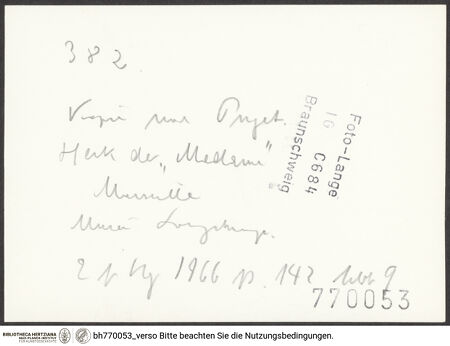 382.
nach Puget.
Werk der „Madame"
Marseille
Musée Longchamp.
1966 p. 142 Abb 9
Foto-Lange
16 C684
Braunschweig
770053
BIBLIOTHECA HERTZIANA
MAX-PLANCK-INSTITUT
FÜR KUNSTGESCHICHTE
bh770053_verso Bitte beachten Sie die Nutzungsbedingungen.